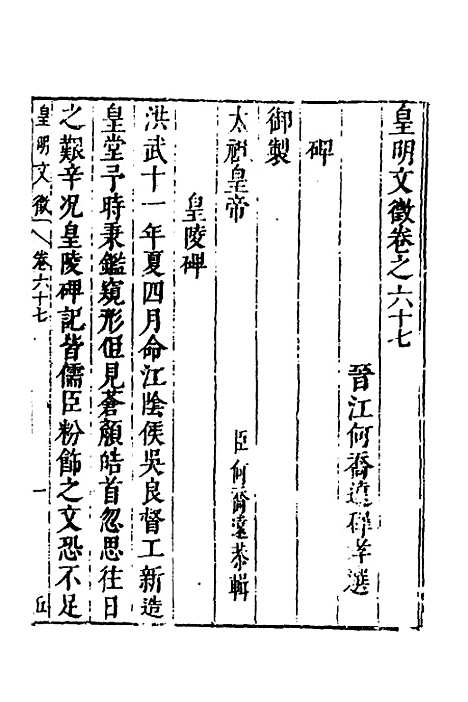 皇明文徵卷之六十七
晉江何喬遠穉孝選
碑
御製
太祖皇帝
臣何喬遠恭輯
皇陵碑
洪武十一年夏四月命江陰侯吳良督工新造
皇堂予時秉鑑窺形但見蒼顏皓首忽思往日
之艱辛况皇陵碑記皆儒臣粉飾之文恐不足
皇明文徵
卷六十七
一
丘